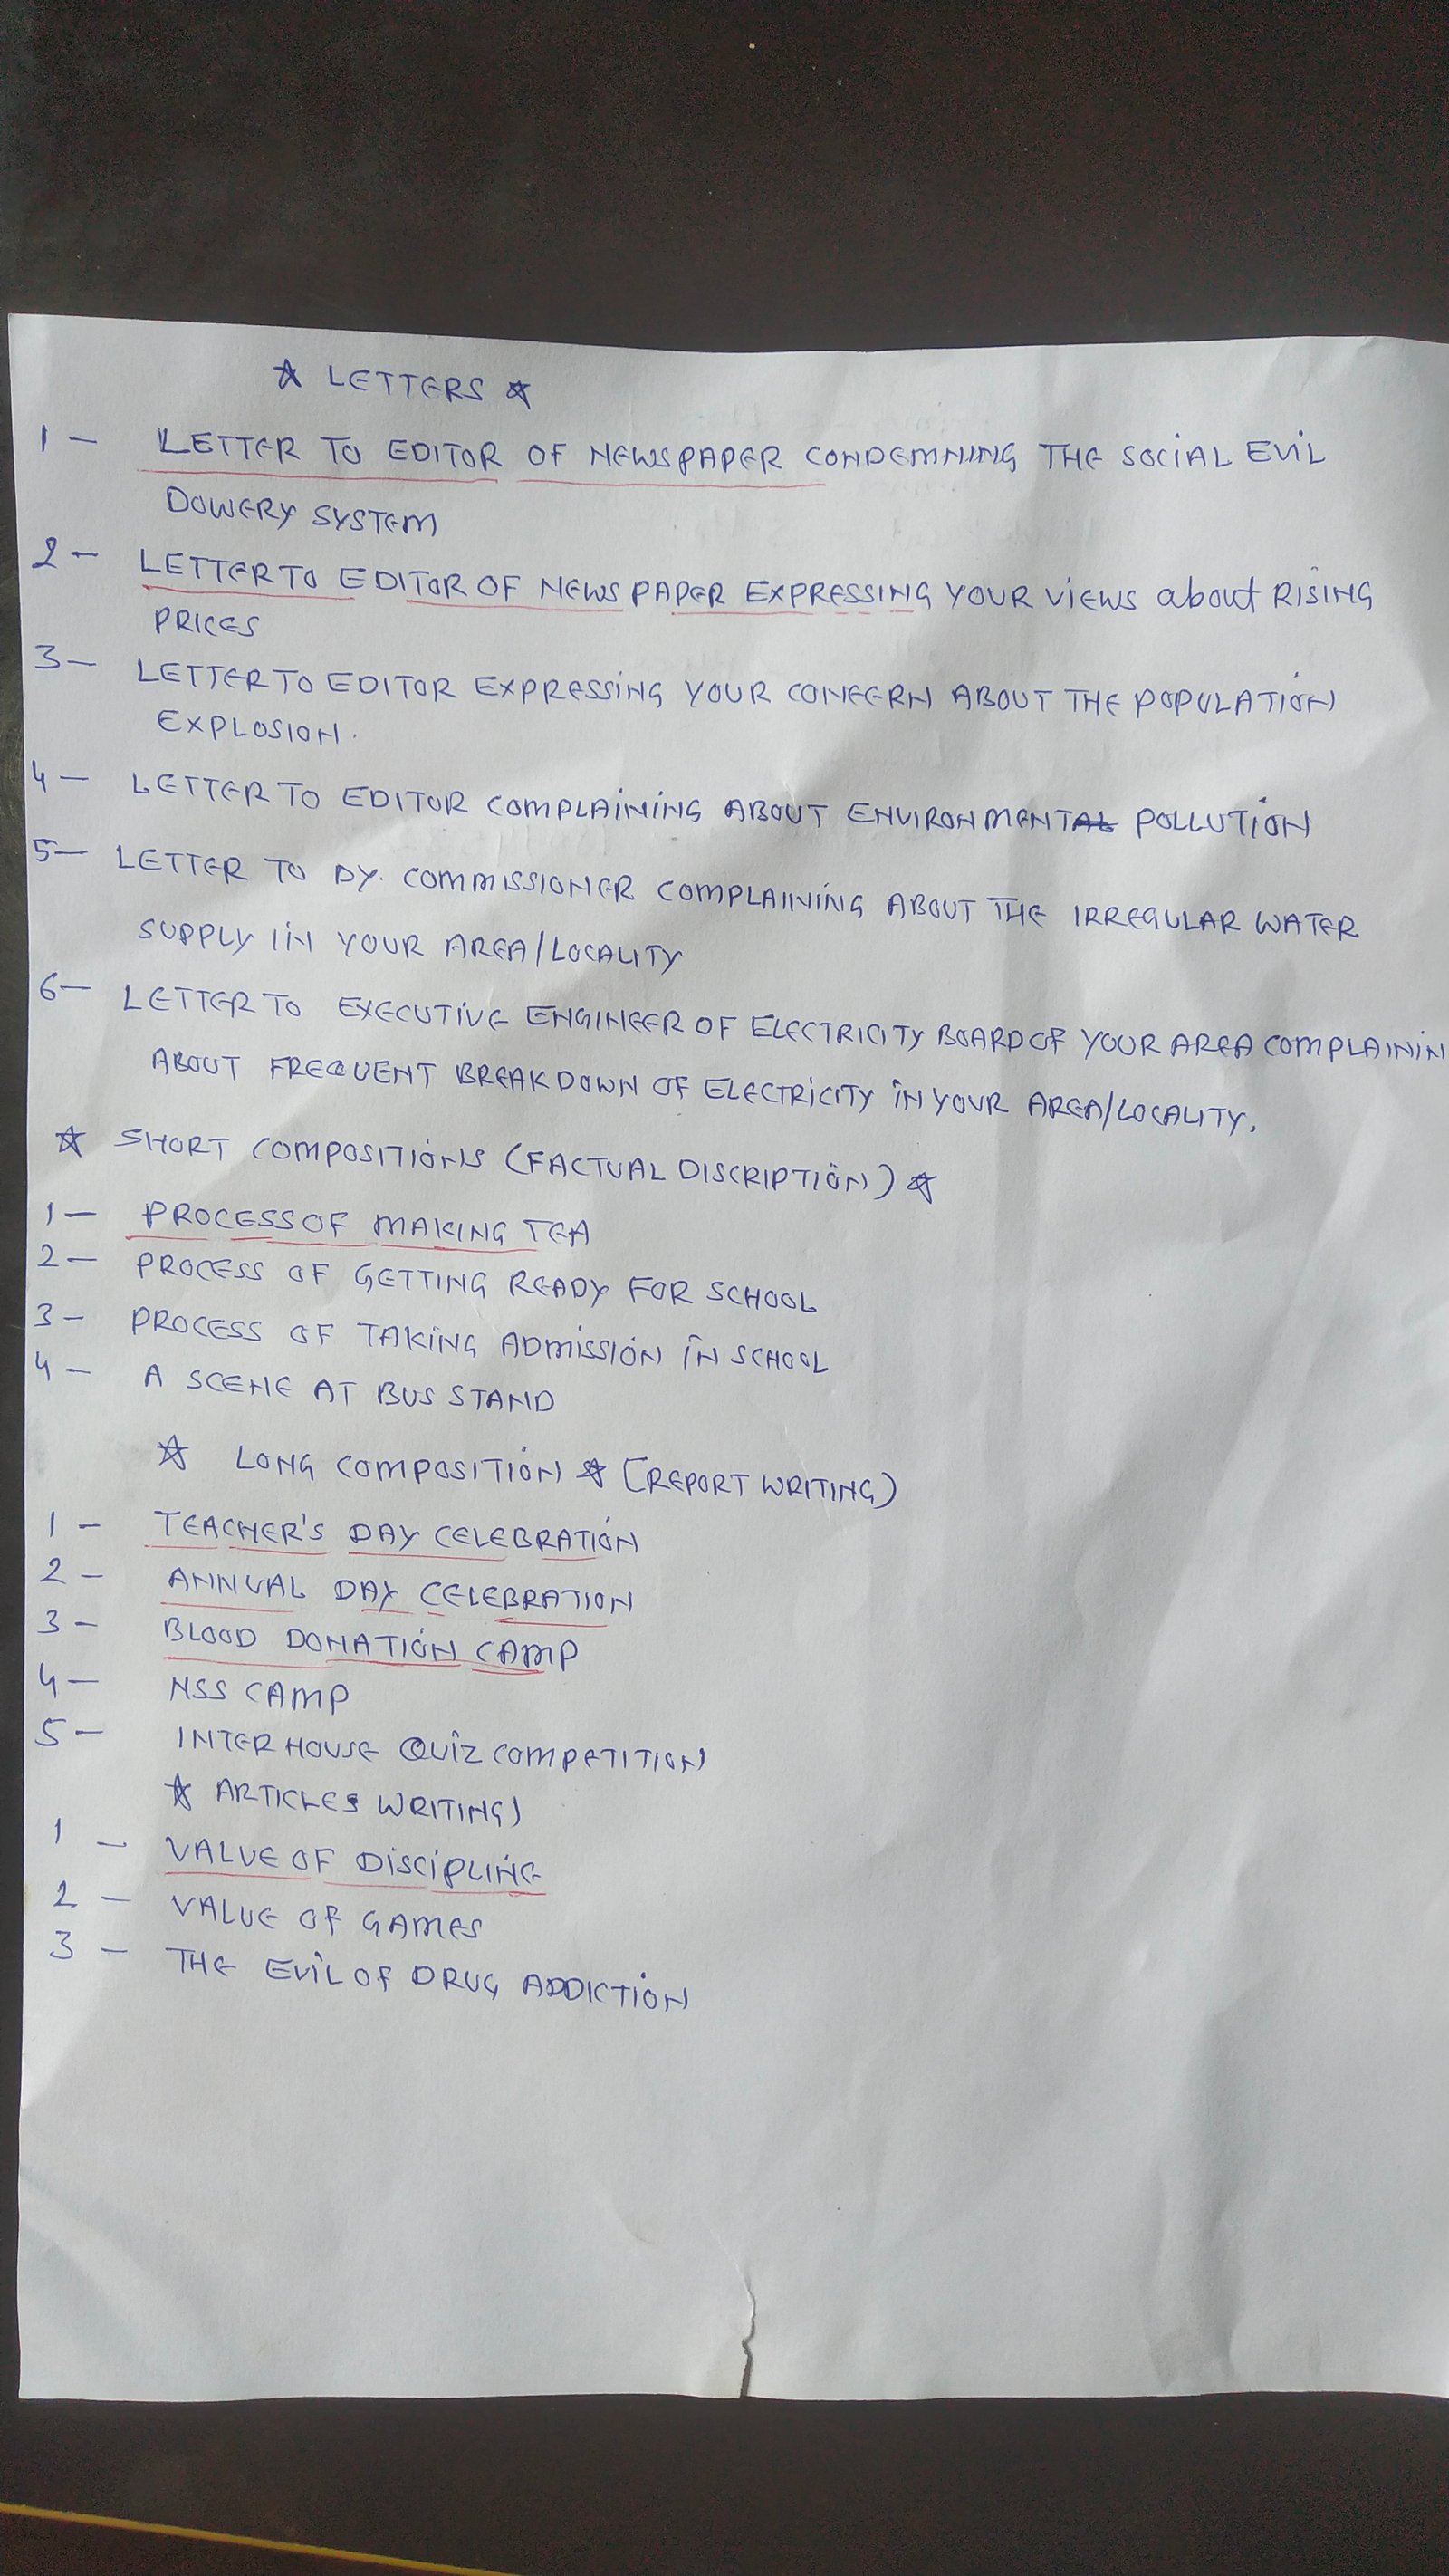 ☆ LETTERS ☆
1 - LETTER TO EDITOR OF NEWSPAPER CONDEMNING THE SOCIAL EVIL
DOWERY SYSTEM
2 - LETTER TO EDITOR OF NEWS PAPER EXPRESSING YOUR VIEWS about RISING
PRICES
3 - LETTER TO EDITOR EXPRESSING YOUR CONCERN ABOUT THE POPULATION
EXPLOSION.
4 - LETTER TO EDITOR COMPLAINING ABOUT ENVIRONMENT POLLUTION
5 - LETTER TO DY. COMMISSIONER COMPLAINING ABOUT THE IRREGULAR WATER
SUPPLY IN YOUR AREA/LOCALITY
6 - LETTER TO EXECUTIVE ENGINEER OF ELECTRICITY BOARD OF YOUR AREA COMPLAININ
ABOUT FREQUENT BREAKDOWN OF ELECTRICITY IN YOUR AREA/LOCALITY.
☆ SHORT COMPOSITIONS (FACTUAL DISCRIPTION) ☆
1 - PROCESS OF MAKING TEA
2 - PROCESS OF GETTING READY FOR SCHOOL
3 - PROCESS OF TAKING ADMISSION IN SCHOOL
4 - A SCENE AT BUS STAND
☆ LONG COMPOSITION ☆ [REPORT WRITING)
1 - TEACHER'S DAY CELEBRATION
2 - ANNUAL DAY CELEBRATION
3 - BLOOD DONATION CAMP
4 - NSS CAMP
5 - INTER HOUSE QUIZ COMPETITION
☆ ARTICLES WRITING)
1 - VALUE OF DISCIPLINE
2 - VALUE OF GAMES
3 - THE EVIL OF DRUG ADDICTION